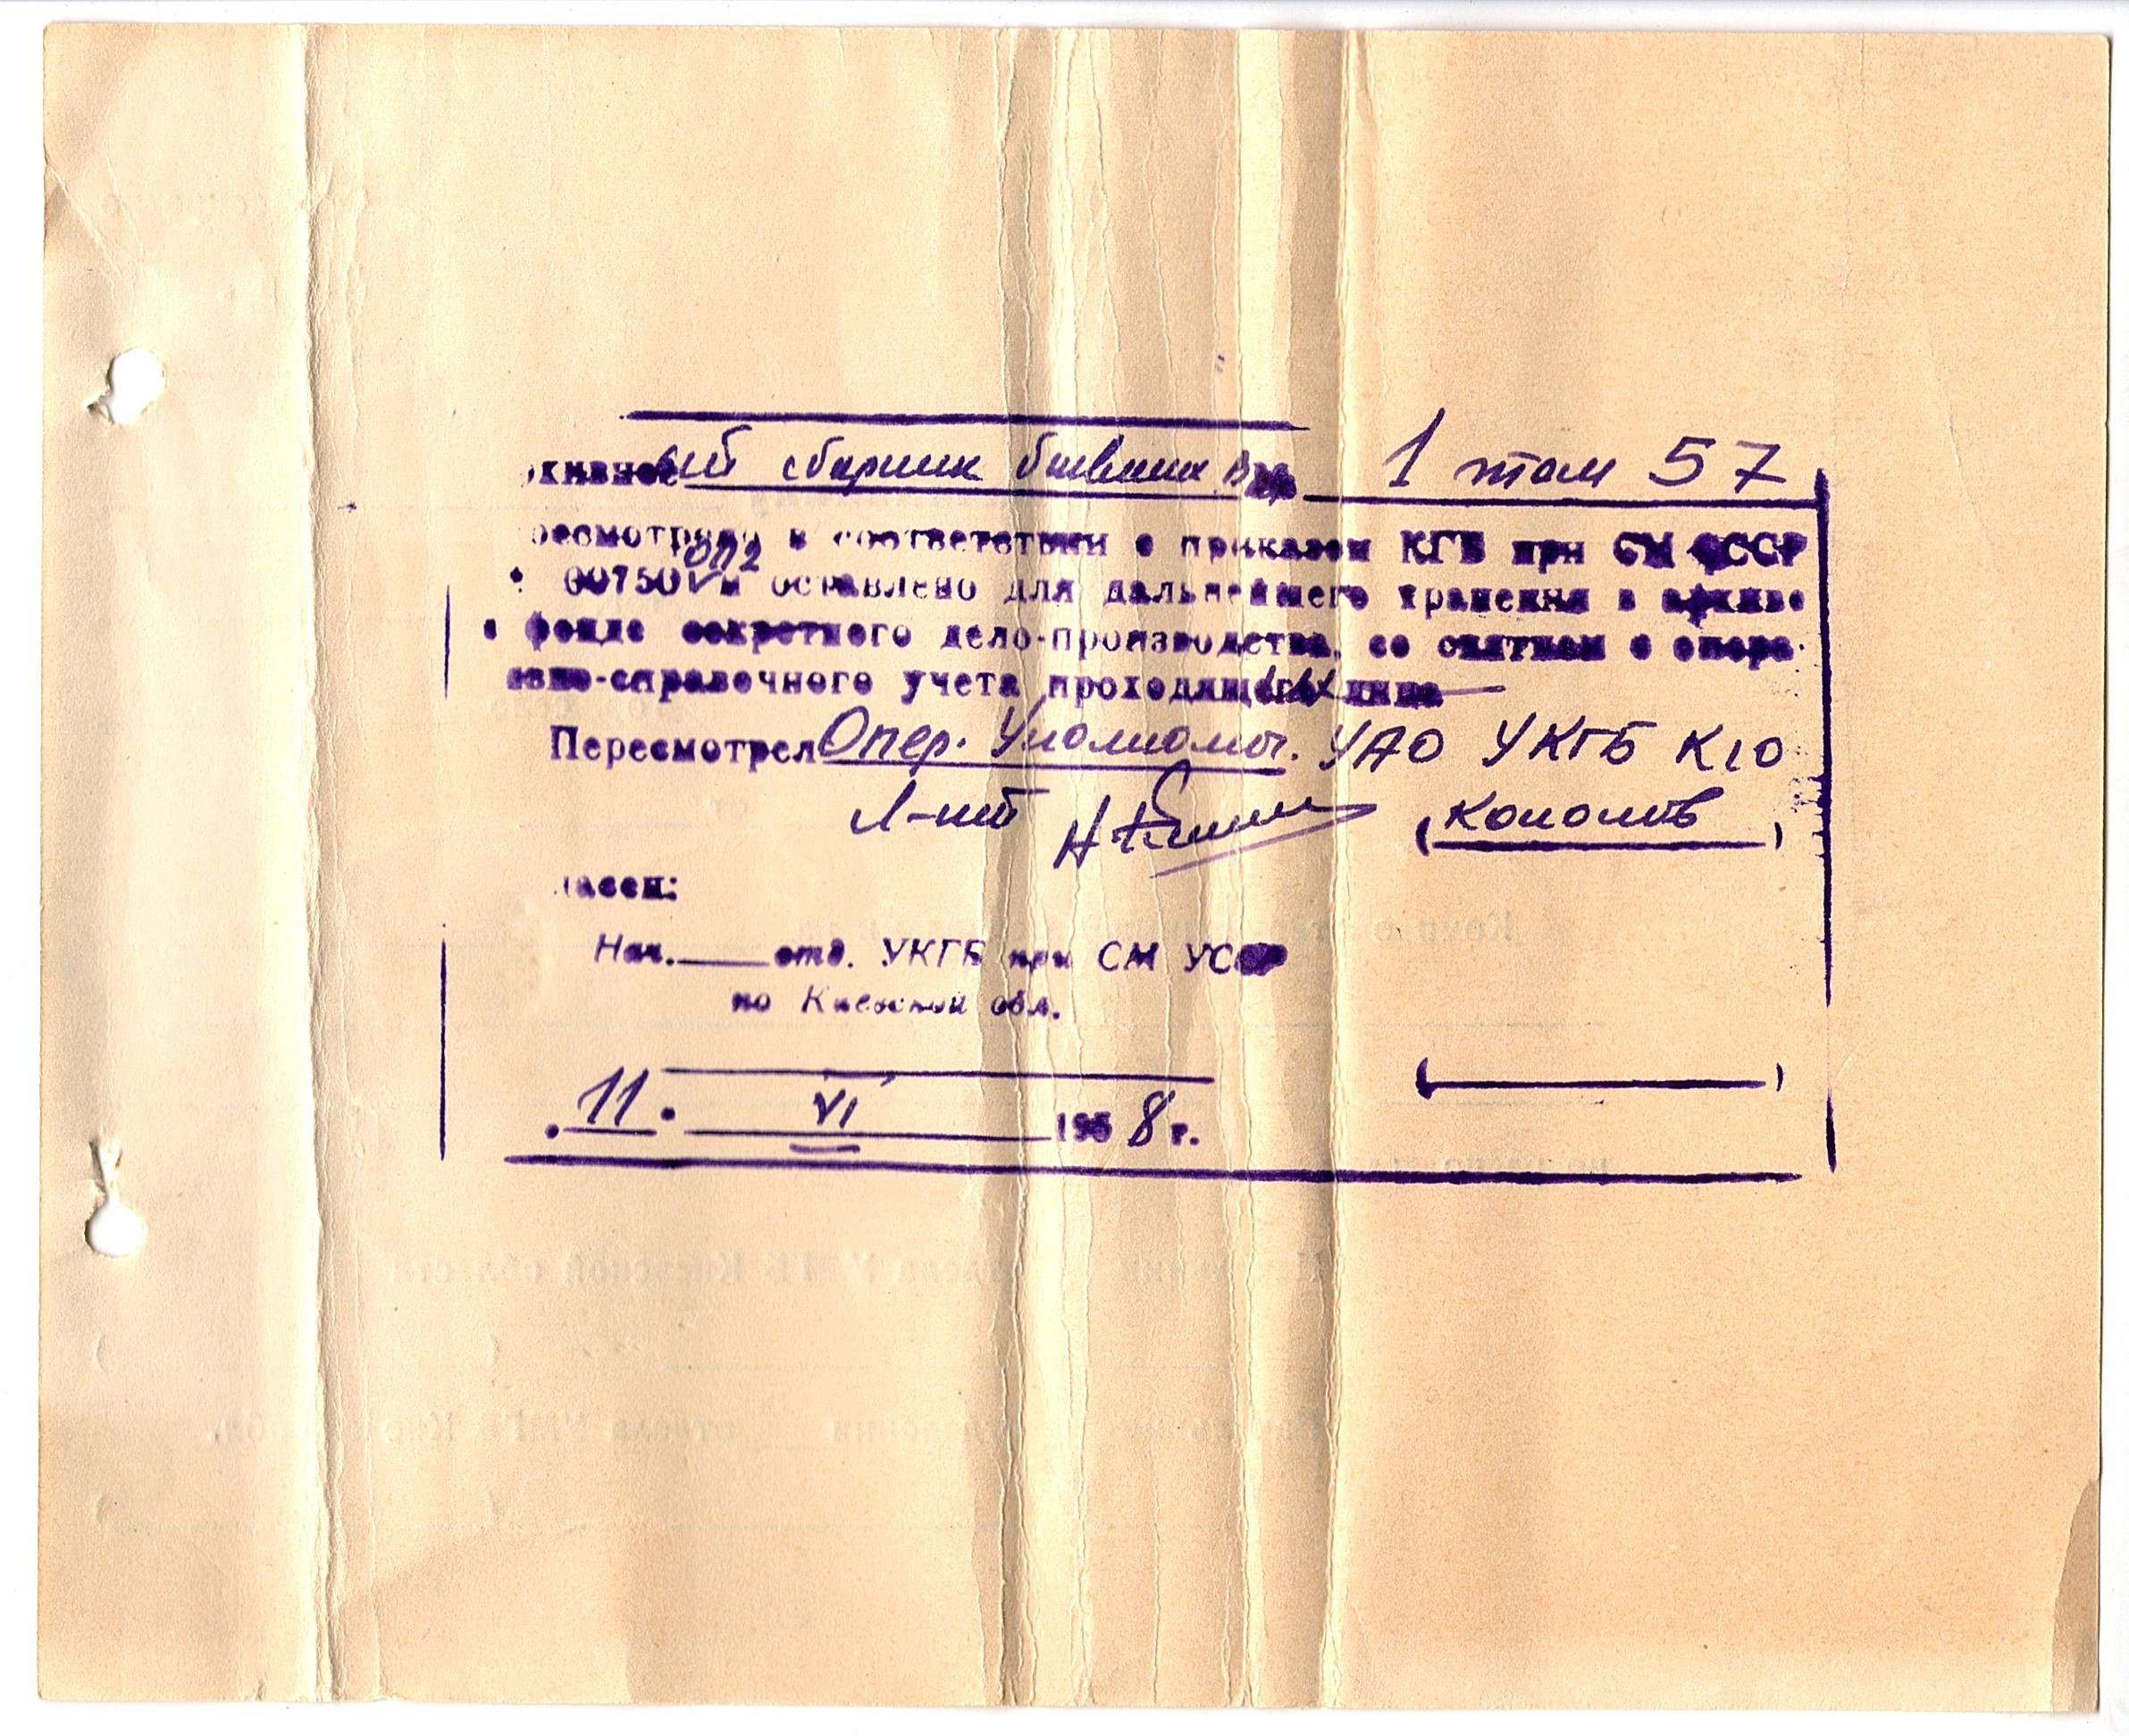 хивный сборник бывших 1 том 57
ресмотрено в соответствии с приказом КГБ при СМ СССР
00750 и оставлено для дальнейшего хранения в архиве
в фонде секретного дело-производства, со снятием с опера
ивно-справочного учета проходящих лиц
Пересмотрел Опер. Уполномоч. УАО УКГБ КО
Л-нт (Кононов)
ласен:
Нач. ___ отд. УКГБ при СМ УССР
по Киевской обл.
( )
"11" VI 1958 г.